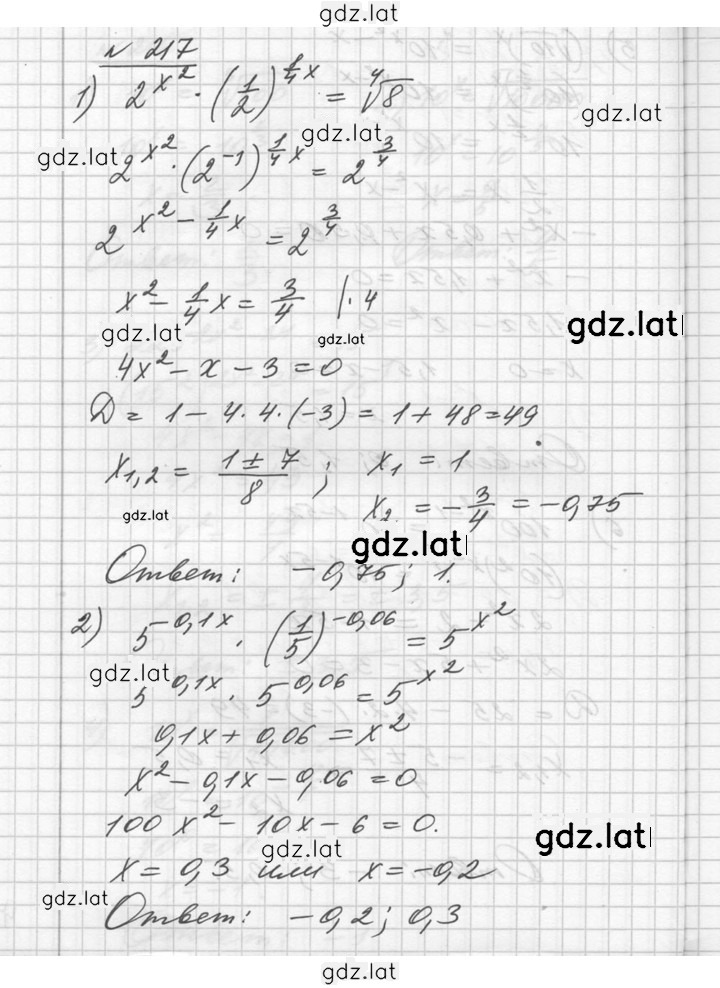 gdz.lat
№ 217
1) 2^(x^2) · (1/2)^(1/4 x) = ⁴√8
gdz.lat
gdz.lat
gdz.lat
2^(x^2) · (2^(-1))^(1/4 x) = 2^(3/4)
2^(x^2 - 1/4 x) = 2^(3/4)
x^2 - 1/4 x = 3/4 |· 4
gdz.lat
gdz.lat
gdz.lat
4x^2 - x - 3 = 0
D = 1 - 4 · 4 · (-3) = 1 + 48 = 49.
x_1,2 = (1 ± 7)/8 ; x_1 = 1
x_2 = -3/4 = -0,75
gdz.lat
gdz.lat
Ответ: -0,75; 1.
2) 5^(-0,1x) · (1/5)^(-0,06) = 5^(x^2)
gdz.lat
5^(0,1x) · 5^(0,06) = 5^(x^2)
0,1x + 0,06 = x^2
x^2 - 0,1x - 0,06 = 0
100x^2 - 10x - 6 = 0.
gdz.lat
gdz.lat
x = 0,3 или x = -0,2
gdz.lat
Ответ: -0,2; 0,3
gdz.lat